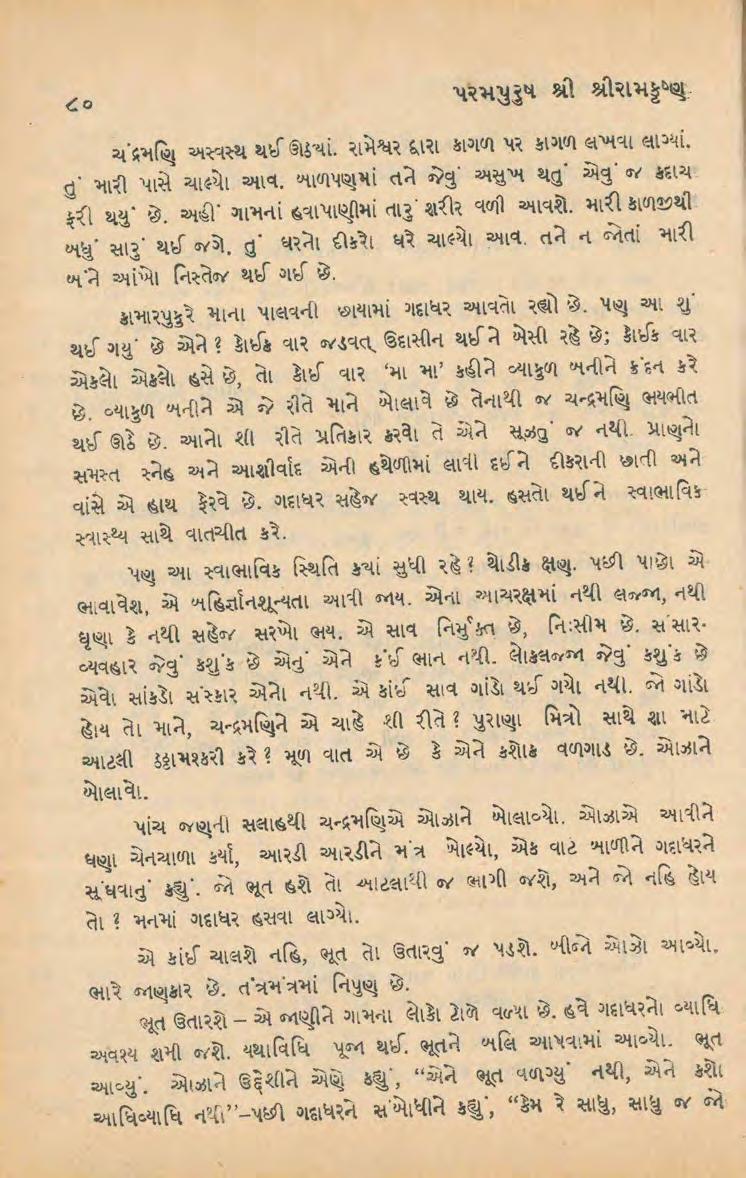 ૮૦
પરમપુરુષ શ્રી શ્રીરામકૃષ્ણ
ચંદ્રમણિ અસ્વસ્થ થઈ ઊઠ્યાં. રામેશ્વર દ્વારા કાગળ પર કાગળ લખવા લાગ્યાં.
તું મારી પાસે ચાલ્યો આવ. બાળપણમાં તને જેવું અસુખ થતું એવું જ કદાચ
ફરી થયું છે. અહીં ગામનાં હવાપાણીમાં તારું શરીર વળી આવશે. મારી કાળજીથી
બધું સારું થઈ જશે. તું ઘરનો દીકરો ઘરે ચાલ્યો આવ. તને ન જોતાં મારી
બંને આંખો નિસ્તેજ થઈ ગઈ છે.
કામારપુકુરે માના પાલવની છાયામાં ગદાધર આવતો રહ્યો છે. પણ આ શું
થઈ ગયું છે એને? કોઈક વાર જડવત્ ઉદાસીન થઈને બેસી રહે છે; કોઈક વાર
એકલો એકલો હસે છે, તો કોઈ વાર ‘મા મા’ કહીને વ્યાકુળ બનીને ક્રંદન કરે
છે. વ્યાકુળ બનીને એ જે રીતે માને બોલાવે છે તેનાથી જ ચન્દ્રમણિ ભયભીત
થઈ ઊઠે છે. આનો શી રીતે પ્રતિકાર કરવો તે એને સૂઝતું જ નથી. પ્રાણનો
સમસ્ત સ્નેહ અને આશીર્વાદ એની હથેળીમાં લાવી દઈને દીકરાની છાતી અને
વાંસે એ હાથ ફેરવે છે. ગદાધર સહેજ સ્વસ્થ થાય. હસતો થઈને સ્વાભાવિક
સ્વાસ્થ્ય સાથે વાતચીત કરે.
પણ આ સ્વાભાવિક સ્થિતિ ક્યાં સુધી રહે? થોડીક ક્ષણ. પછી પાછો એ
ભાવાવેશ, એ બહિર્જ્ઞાનશૂન્યતા આવી જાય. એના આચરણમાં નથી લજ્જા, નથી
ઘૃણા કે નથી સહેજ સરખો ભય. એ સાવ નિર્મુક્ત છે, નિઃસીમ છે. સંસાર-
વ્યવહાર જેવું કશુંક છે એનું એને કંઈ ભાન નથી. લોકલજ્જા જેવું કશુંક છે
એવો સાંકડો સંસ્કાર એનો નથી. એ કાંઈ સાવ ગાંડો થઈ ગયો નથી. જો ગાંડો
હોય તો માને, ચન્દ્રમણિને એ ચાહે શી રીતે? પુરાણા મિત્રો સાથે શા માટે
આટલી ઠઠ્ઠામશ્કરી કરે? મૂળ વાત એ છે કે એને કશોક વળગાડ છે. ઓઝાને
બોલાવો.
પાંચ જણની સલાહથી ચન્દ્રમણિએ ઓઝાને બોલાવ્યો. ઓઝાએ આવીને
ઘણા ચેનચાળા કર્યા, આરડી આરડીને મંત્ર બોલ્યો, એક વાટ બાળીને ગદાધરને
સૂંઘવાનું કહ્યું. જો ભૂત હશે તો આટલાથી જ ભાગી જશે, અને જો નહિ હોય
તો? મનમાં ગદાધર હસવા લાગ્યો.
એ કાંઈ ચાલશે નહિ, ભૂત તો ઉતારવું જ પડશે. બીજો ઓઝો આવ્યો.
ભારે જાણકાર છે. તંત્રમંત્રમાં નિપુણ છે.
ભૂત ઉતારશે – એ જાણીને ગામના લોકો ટોળે વળ્યા છે. હવે ગદાધરનો વ્યાધિ
અવશ્ય શમી જશે. યથાવિધિ પૂજા થઈ. ભૂતને બલિ આપવામાં આવ્યો. ભૂત
આવ્યું. ઓઝાને ઉદ્દેશીને એણે કહ્યું, “એને ભૂત વળગ્યું નથી, એને કશો
આધિવ્યાધિ નથી”–પછી ગદાધરને સંબોધીને કહ્યું, “કેમ રે સાધુ, સાધુ જ જો